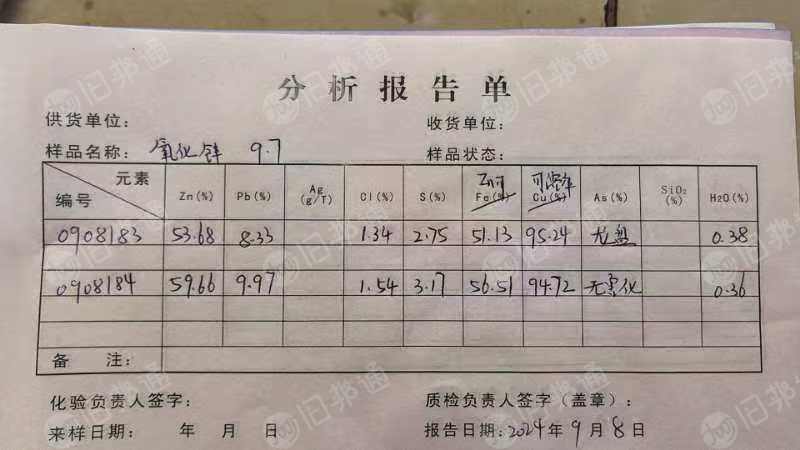 分析报告单
供货单位： 收货单位：
样品名称： 氧化锌 9.7 样品状态：
元素 编号 Zn(%) Pb(%) Ag(g/T) Cl(%) S(%) Zn可 Fe(%) 可溶率 Cu(%) As(%) SiO₂(%) H2O(%)
0908183 53.68 8.33 1.34 2.75 51.13 95.24 0.38
0908184 59.66 9.97 1.54 3.17 56.51 94.72 0.36
备 注：
化验负责人签字： 质检负责人签字（盖章）：
来样日期： 年 月 日 报告日期：2024年9月8日
旧邦通